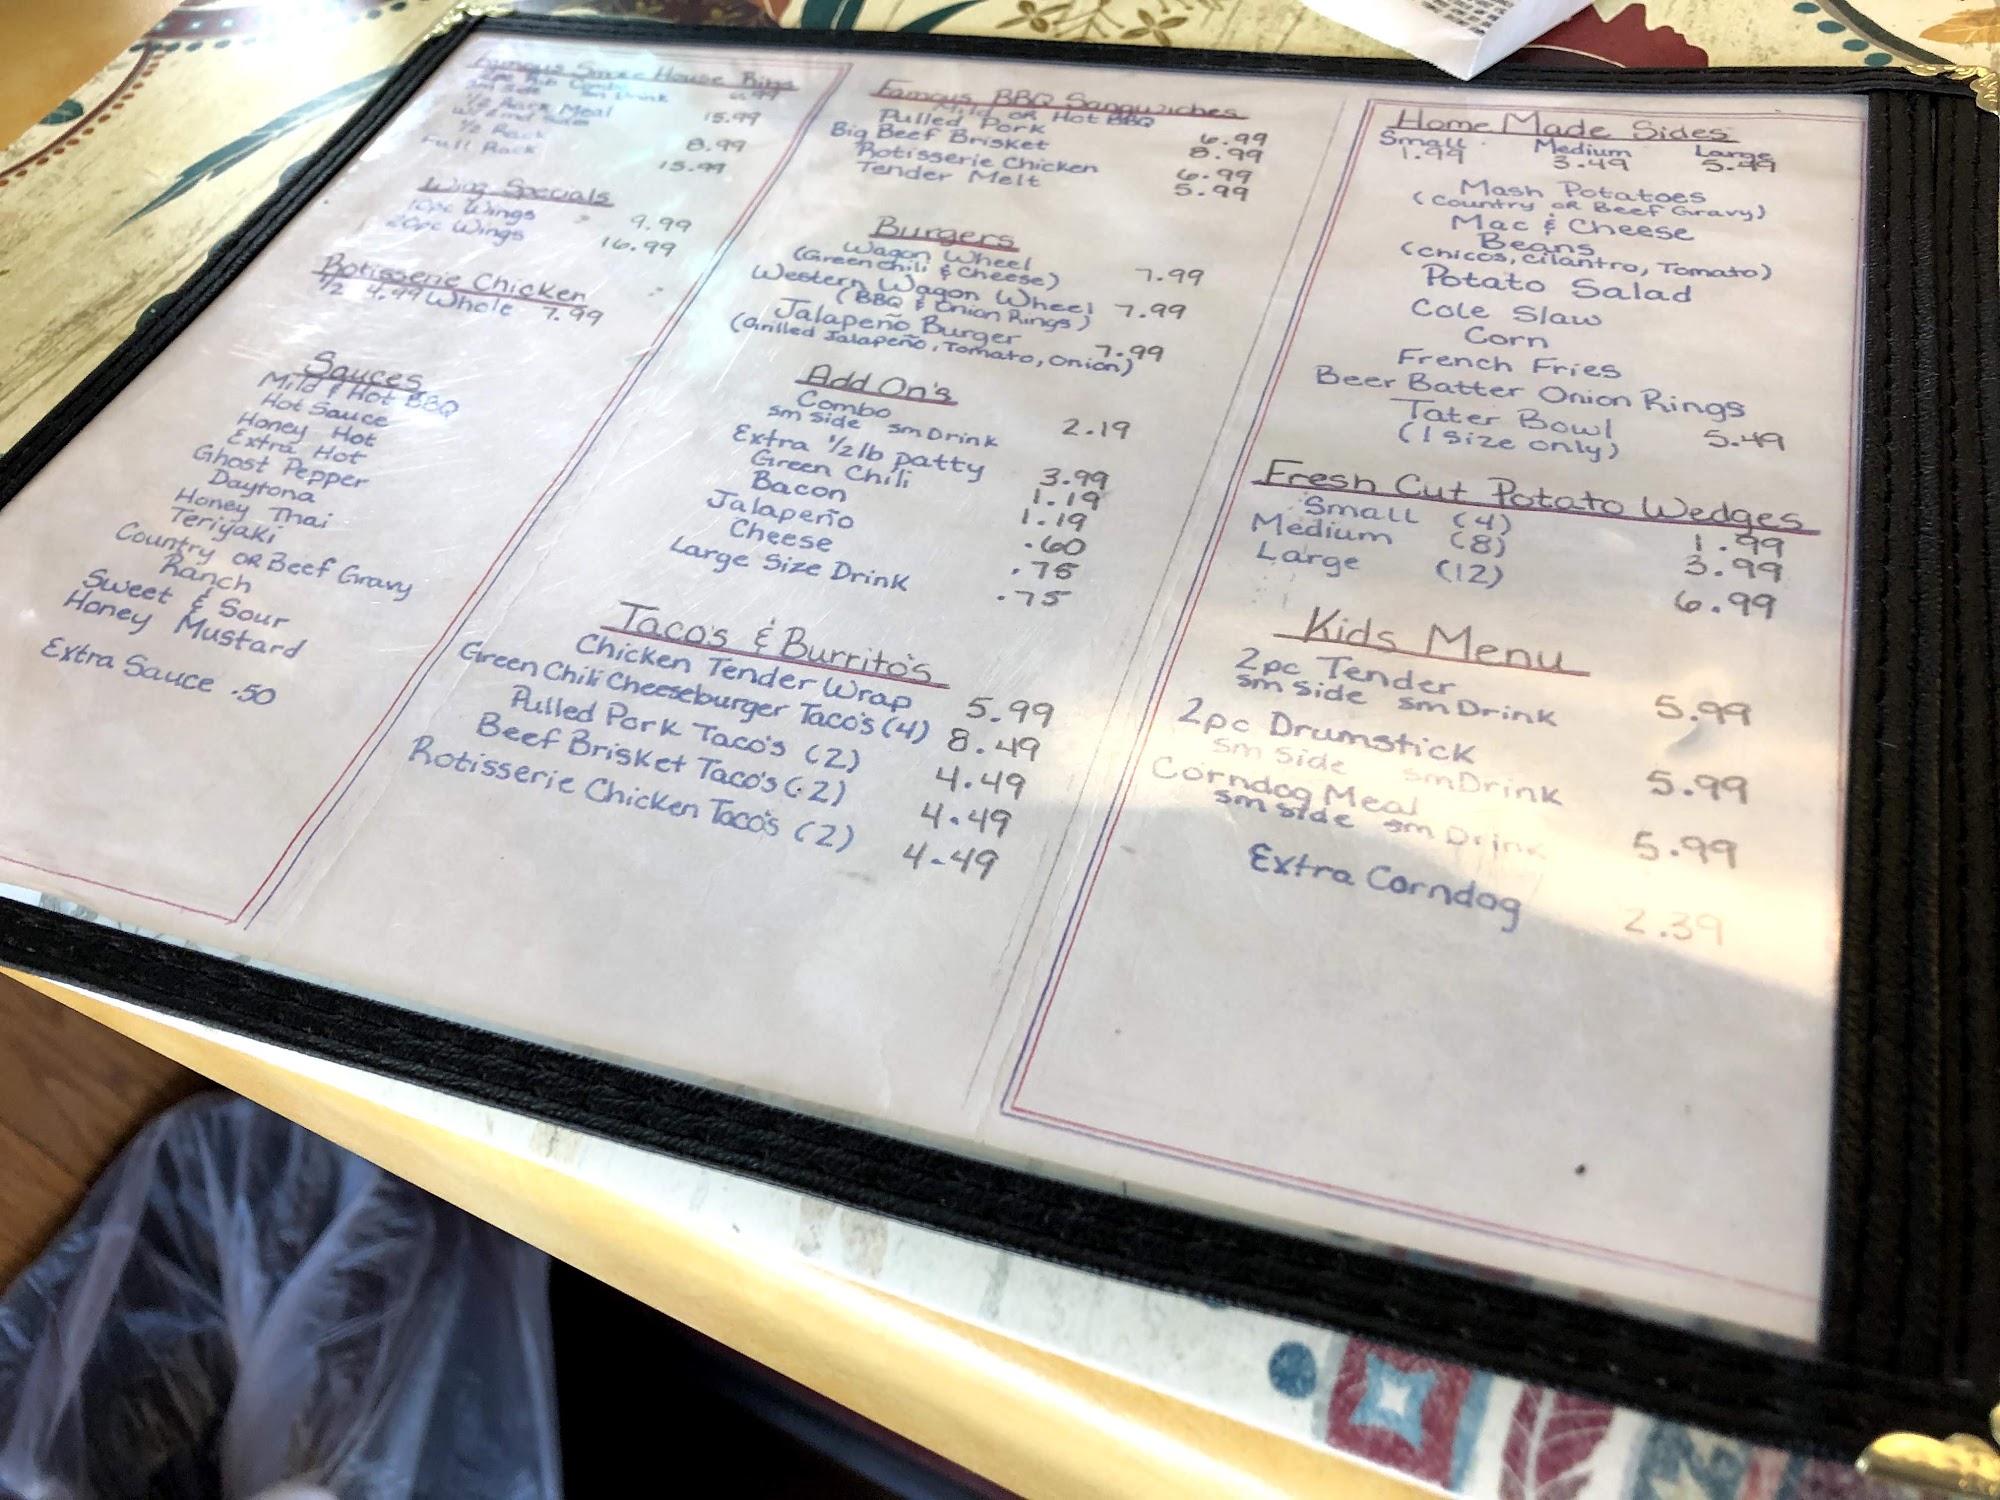 Famous Smoke House Ribs
2pc Rib Combo
sm side sm Drink 6.99
1/2 Rack Meal
w/ 2 med sides 15.99
1/2 Rack 8.99
Full Rack 15.99
Wing Specials
10pc Wings 9.99
20pc Wings 16.99
Rotisserie Chicken
1/2 4.99 Whole 7.99
Sauces
Mild & Hot BBQ
Hot Sauce
Honey Hot
Extra Hot
Ghost Pepper
Daytona
Honey Thai
Teriyaki
Country OR Beef Gravy
Ranch
Sweet & Sour
Honey Mustard
Extra Sauce .50
Famous BBQ Sandwiches
Mild OR Hot BBQ
Pulled Pork 6.99
Big Beef Brisket 8.99
Rotisserie Chicken 6.99
Tender Melt 5.99
Burgers
Wagon Wheel 7.99
(Green chili & Cheese)
Western Wagon Wheel 7.99
(BBQ & Onion Rings)
Jalapeño Burger 7.99
(Grilled Jalapeño, Tomato, Onion)
Add On's
Combo 2.19
sm side sm Drink
Extra 1/2 lb patty 3.99
Green Chili 1.19
Bacon 1.19
Jalapeño .60
Cheese .75
Large Size Drink .75
Taco's & Burrito's
Chicken Tender Wrap 5.99
Green Chili Cheeseburger Taco's (4) 8.49
Pulled Pork Taco's (2) 4.49
Beef Brisket Taco's (2) 4.49
Rotisserie Chicken Taco's (2) 4.49
Home Made Sides
Small Medium Large
1.99 3.49 5.49
Mash Potatoes
(Country OR Beef Gravy)
Mac & Cheese
Beans
(Chicos, Cilantro, Tomato)
Potato Salad
Cole Slaw
Corn
French Fries
Beer Batter Onion Rings
Tater Bowl 5.49
(1 size only)
Fresh Cut Potato Wedges
Small (4) 1.99
Medium (8) 3.99
Large (12) 6.99
Kids Menu
2pc Tender 5.99
sm side sm Drink
2pc Drumstick 5.99
sm side sm Drink
Corndog Meal 5.99
sm side sm Drink
Extra Corndog 2.39